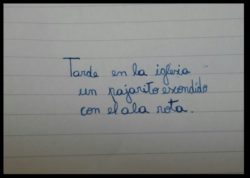 Tarde en la iglesia
un pajarito escondido
con el ala rota.